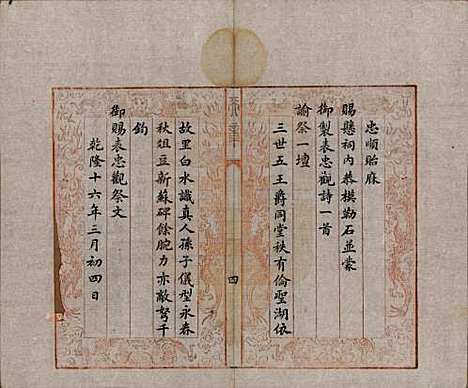 忠順貽庥
賜懸祠內恭模勒石並蒙
御製表忠觀詩一首
諭祭一壇
三世五王爵同堂秩有倫聖湖依
故里白水識真人孫子儀型永春
秋俎豆新蘇碑餘腕力亦敵弩千
鈞
御賜表忠觀祭文
乾隆十六年三月初四日
四